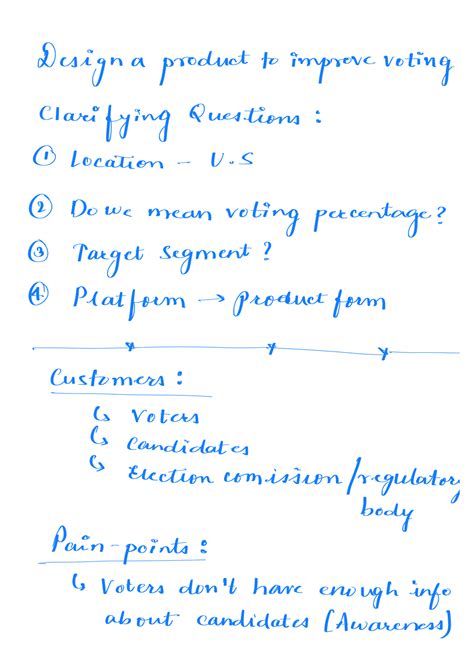 Design a product to improve voting
Clarifying Questions :
① Location - U.S
② Do we mean voting percentage?
③ Target Segment ?
④ Platform → product form
Customers :
↳ Voters
↳ Candidates
↳ Election comission/regulatory
body
Pain-points :
↳ Voters don't have enough info
about candidates (Awareness)